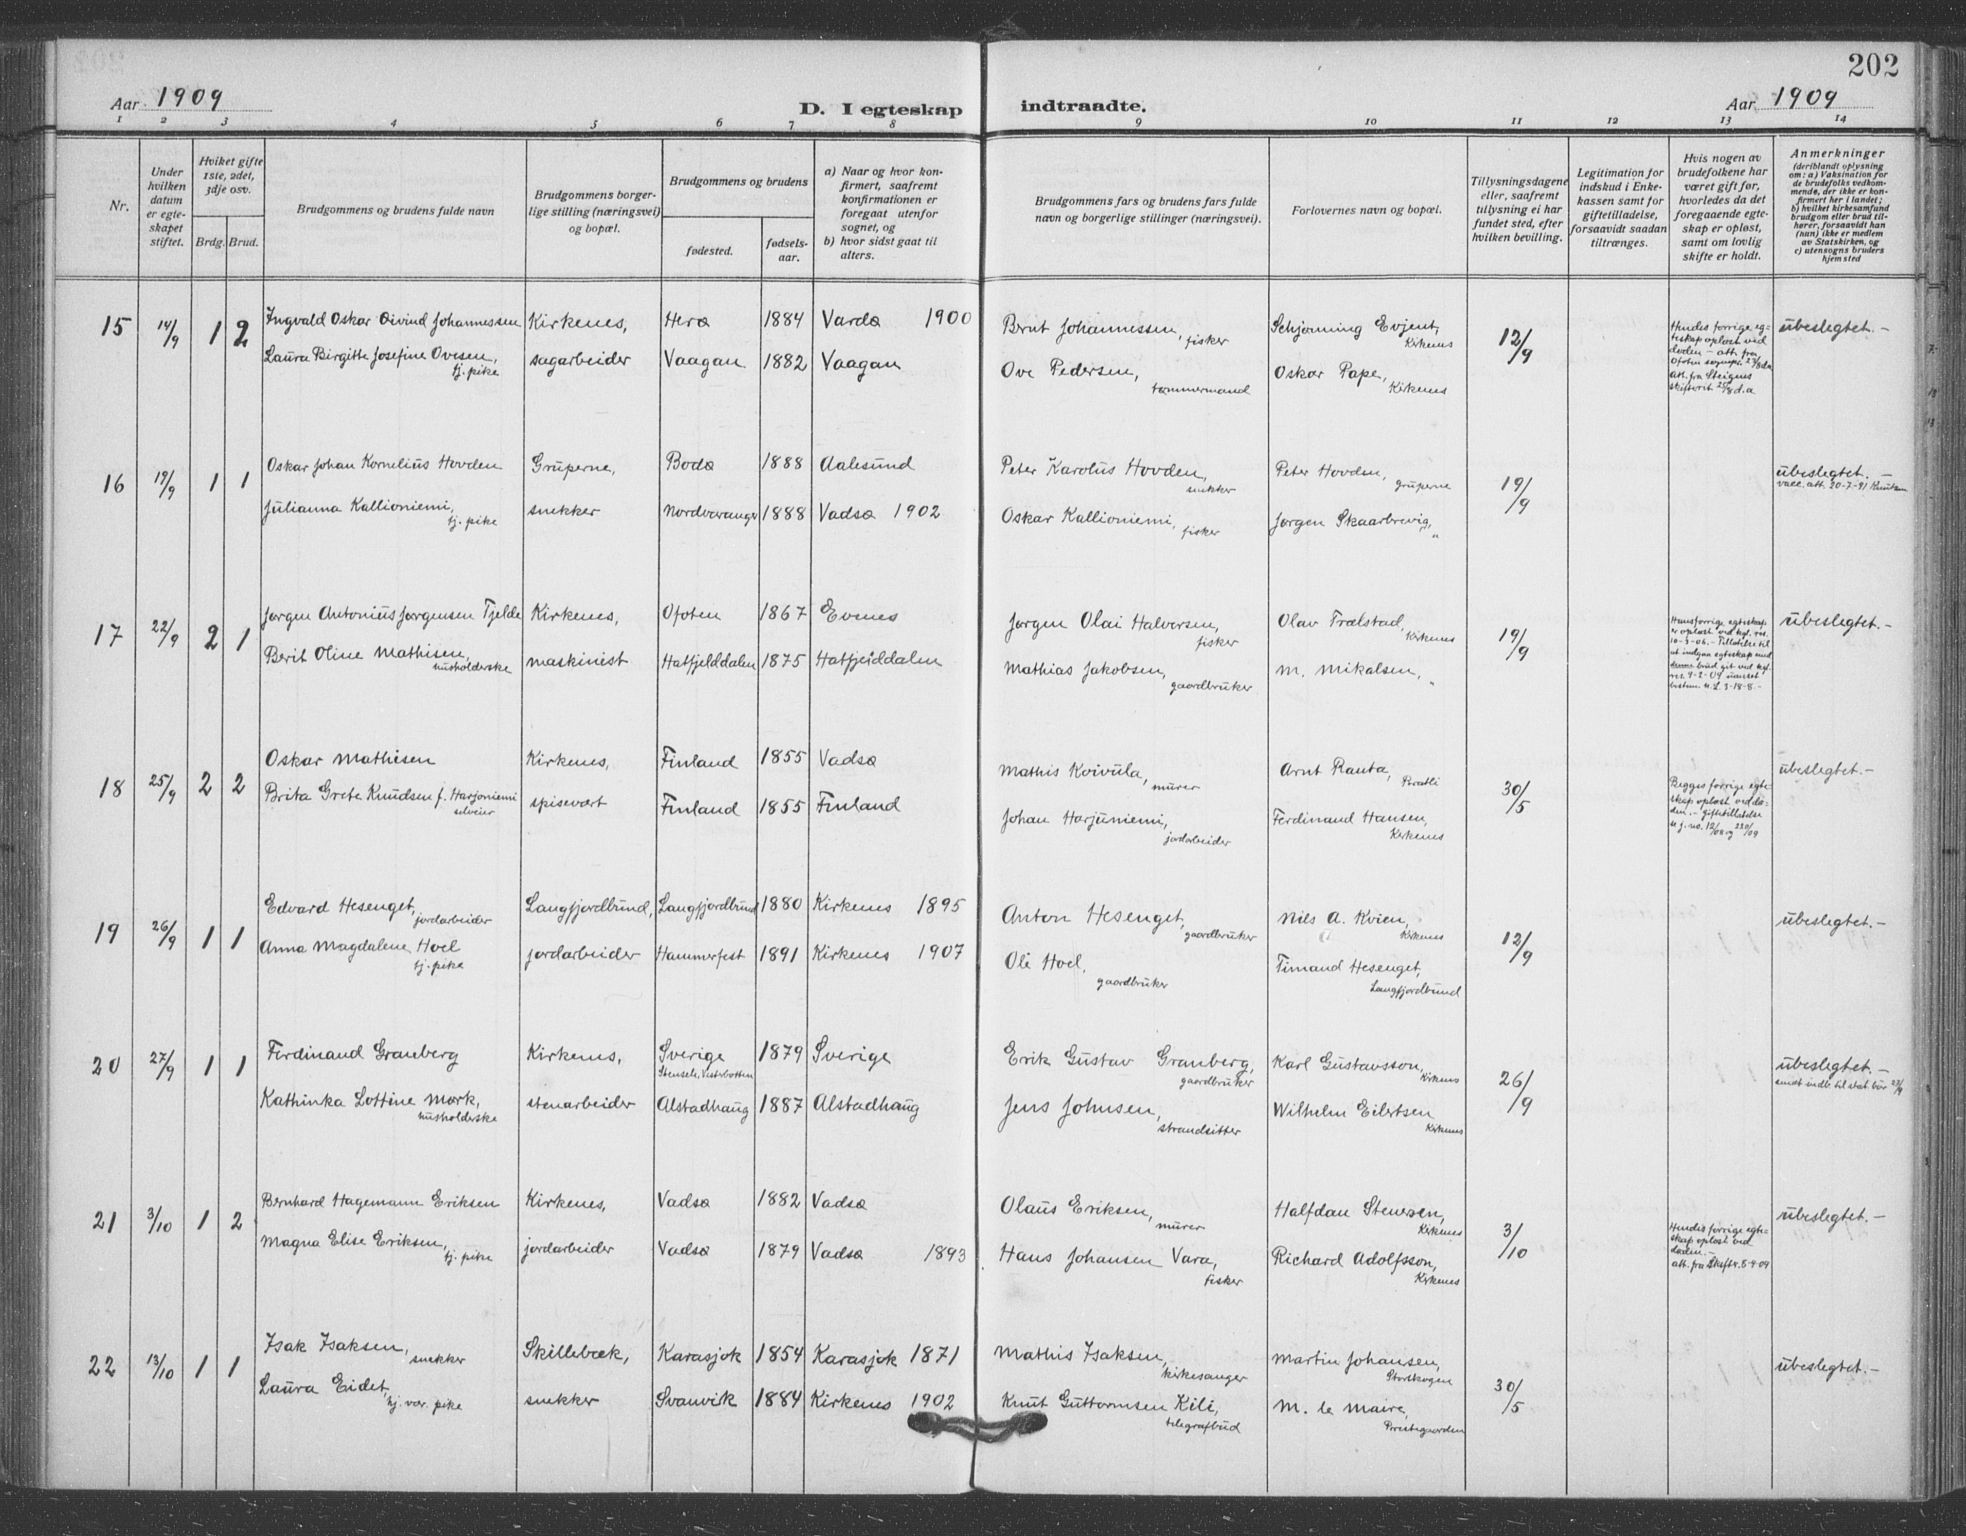 202
Aar 1909
D. I egteskap indtraadte.
Aar 1909
1 2 3 4 5 6 7 8 9 10 11 12 13 14
Nr.
Under hvilken datum er egteskapet stiftet.
Hviket gifte 1ste, 2det, 3dje osv.
Brdg. Brud.
Brudgommens og brudens fulde navn
Brudgommens borgerlige stilling (næringsvei) og bopæl.
Brudgommens og brudens
fødested.
fødselsaar.
a) Naar og hvor konfirmert, saafremt konfirmationen er foregaat utenfor sognet, og
b) hvor sidst gaat til alters.
Brudgommens fars og brudens fars fulde navn og borgerlige stillinger (næringsvei).
Forlovernes navn og bopæl.
Tillysningsdagene eller, saafremt tillysning ei har fundet sted, efter hvilken bevilling.
Legitimation for indskud i Enkekassen samt for giftetilladelse, forsaavidt saadan tiltrænges.
Hvis nogen av brudefolkene har været gift før, hvorledes da det foregaaende egteskap er opløst, samt om lovlig skifte er holdt.
Anmerkninger
(deriblandt oplysning om: a) Vaksination for de brudefolks vedkommende, der ikke er konfirmert her i landet; b) hvilket kirkesamfund brudgom eller brud tilhører, forsaavidt han (hun) ikke er medlem av Statskirken, og c) utensogns bruders hjemsted
15 14/9 1 2 Ingvald Oskar Øivind Johannessen Kirkenes, Herø 1884 Vardø 1900 Bernt Johannessen, fisker Schjønning Evjent, Kirkenes 12/9
Laura Birgitte Josefine Ovesen, tj. pike sagarbeider Vaagan 1882 Vaagan Ove Pedersen, tømmermand Oskar Pape, Kirkenes
Hendes forrige egteskap opløst ved døden – att. fra Ofoten sognepr. 23/8 d.a. att. fra Steigens skifterit 25/8 d.a
ubeslegtet.–
16 19/9 1 1 Oskar Johan Kornelius Hovden Gruperne, Bodø 1888 Aalesund Peter Karolus Hovden, snekker Peter Hovden, gruperne 19/9
Julianna Kallioniemi, tj. pike snekker Nordvaranger 1888 Vadsø 1902 Oskar Kallioniemi, fisker Jørgen Skaarbrevig, "
ubeslegtet.–
vacc. att. 20-7-91
17 22/9 2 1 Jørgen Antonius Jørgensen Tjelde Kirkenes, Ofoten 1867 Evenes Jørgen Olai Halversen, fisker Olav Trælstad, Kirkenes 19/9
Berit Oline Mathisen, husholderske maskinist Hatfjelddalen 1875 Hatfjelddalen Mathias Jakobsen, gaardbruker M. Mikalsen, "
Hans forrige egteskap er opløst ved kgl. res. 10-3-06.– Tillatelse til at indgaa egteskap med denne brud git ved kgl. res. 9-2-09 uanset bestem. N.L. 3-18-8.–
ubeslegtet.–
18 25/9 2 2 Oskar Mathisen Kirkenes, Finland 1855 Vadsø Mathis Koivula, murer Arnt Ranta, 30/5
Brita Grete Knudsen f. Harjoniemi selveier spisevært Finland 1855 Finland Johan Harjuniemi, jordarbeider Ferdinand Hansen, Kirkenes
Begges forrige egteskap opløst ved døden.– giftetilladelse se j. no. 12/08 og 230/09
ubeslegtet.–
19 26/9 1 1 Edvard Hesenget, jordarbeider Langfjordbund, Langfjordbund 1880 Kirkenes 1895 Anton Hesenget, gaardbruker Nils A. Kvien, Kirkenes 12/9
Anna Magdalene Hoel tj. pike jordarbeider Hammerfest 1891 Kirkenes 1907 Ole Hoel, gaardbruker Timand Hesenget, Langfjordbund
ubeslegtet.–
20 27/9 1 1 Ferdinand Granberg Kirkenes, Sverige Stensele, Vesterbotten 1879 Sverige Erik Gustav Granberg, gaardbruker Karl Gustavsson, Kirkenes 26/9
Kathinka Lottine Mørk, husholderske stenarbeider Alstadhaug 1887 Alstadhaug Jens Johnsen, strandsitter Wilhelm Eilertsen Kirkenes
ubeslegtet.–
sendt indb. til stat. bür 29/9
21 3/10 1 2 Bernhard Hagemann Eriksen Kirkenes, Vadsø 1882 Vadsø Olaus Eriksen, murer Halfdan Stenersen, Kirkenes 3/10
Magna Elise Eriksen, tj. pike jordarbeider Vadsø 1879 Vadsø 1893 Hans Johansen Vara, fisker Richard Adolfsson, Kirkenes
Hendes forrige egteskap opløst ved døden.– att. fra Skiftr. 5-9-09
ubeslegtet.–
22 13/10 1 1 Isak Isaksen, snekker Skillebæk, Karasjok 1854 Karasjok 1871 Mathis Isaksen, kirkesanger Martin Johansen, Storskogen 30/5
Laura Eidet, hj. vær. pike snekker Svanvik 1884 Kirkenes 1902 Knut Guttormsen Kili, telegrafbud M. le Maire, Prestegaarden
ubeslegtet.–